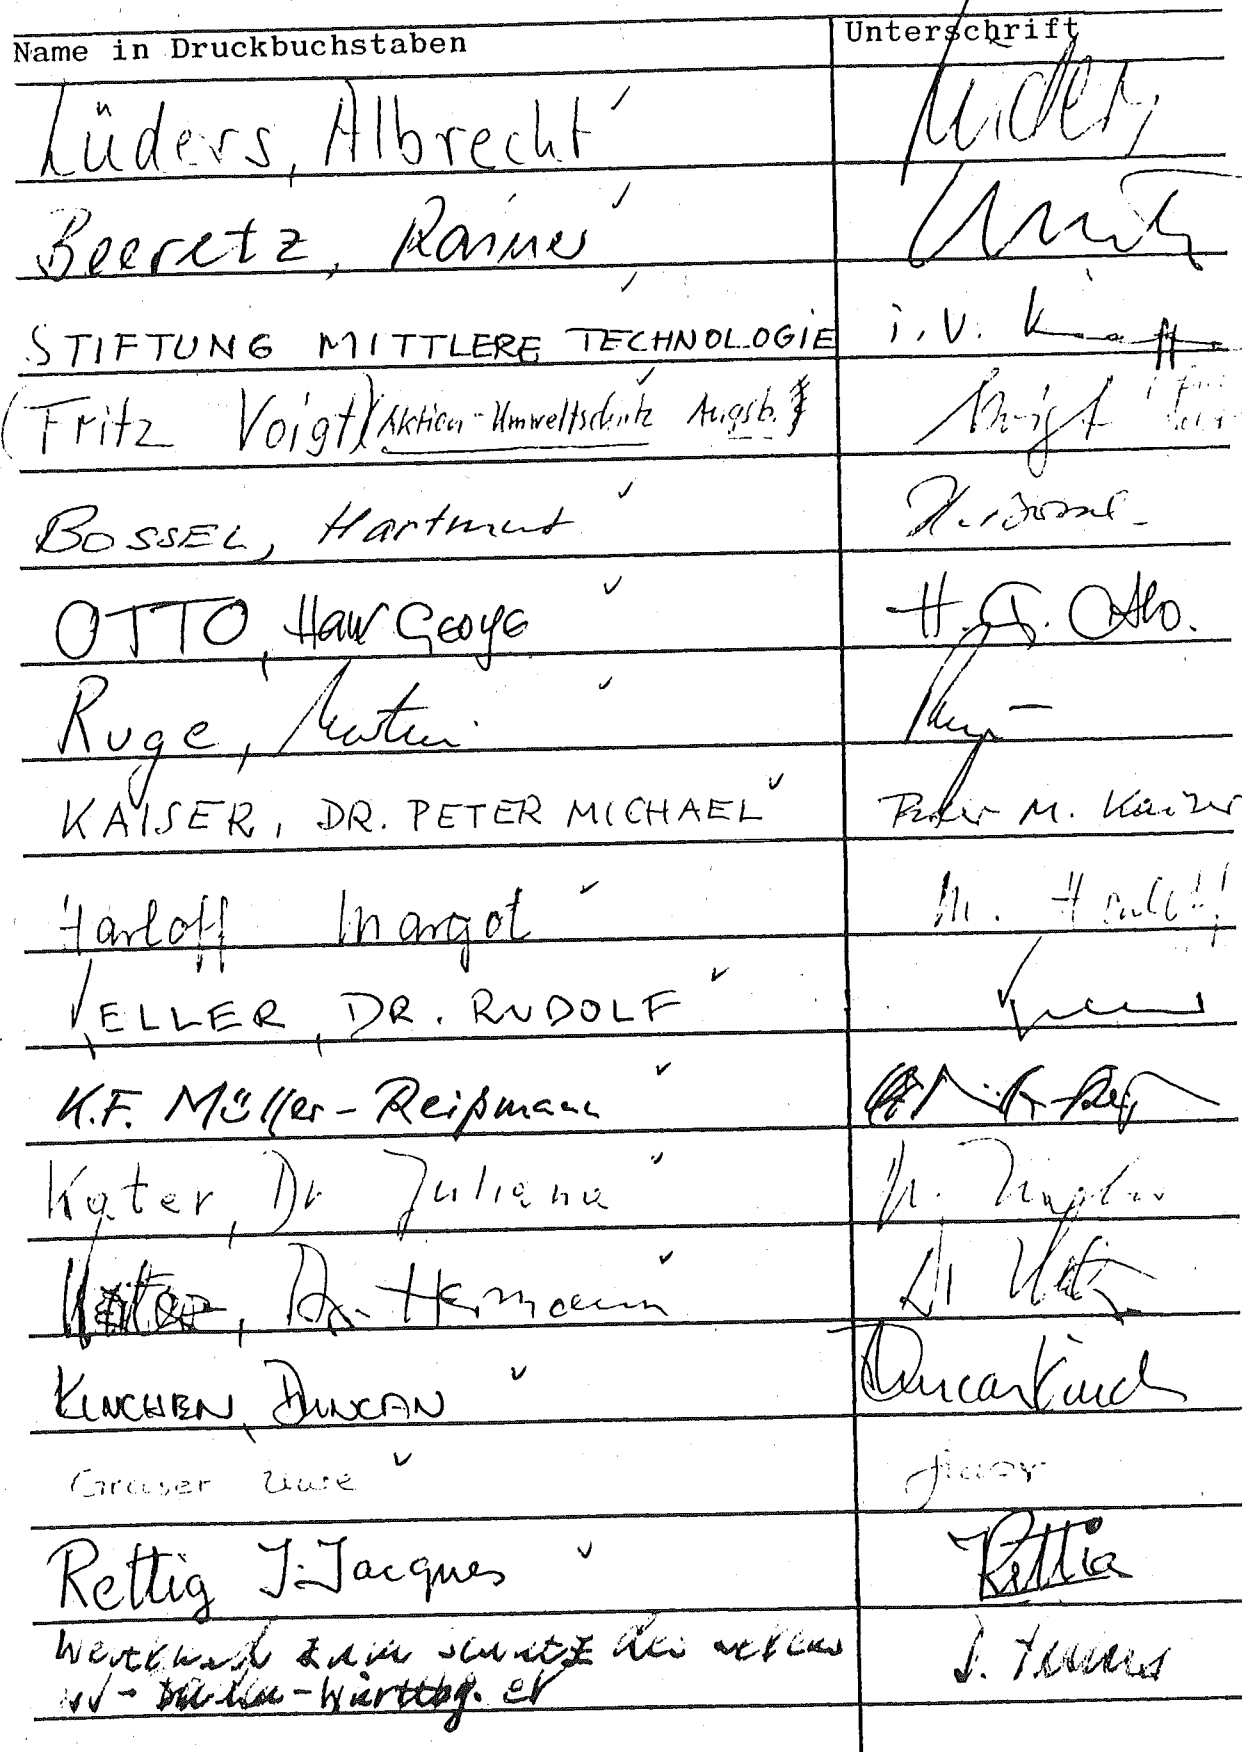 Name in Druckbuchstaben Unterschrift
Lüders, Albrecht Lüders
Beeretz, Rainer
STIFTUNG MITTLERE TECHNOLOGIE i.V.
(Fritz Voigt) (Aktion-Umweltschutz Augsb.) Voigt
BOSSEL, Hartmut H. Bossel
OTTO, Hans George H. G. Otto.
Ruge, Martin Ruge
KAISER, DR. PETER MICHAEL Peter M. Kaiser
Harloff Margot M. Harloff
KELLER, DR. RUDOLF
K.F. Müller-Reißmann
Kater, Dr Juliana
Dr. Hermann Dr
KINCHEN, DUNCAN Duncan Kinch
Graser Uwe
Rettig J.Jacques Rettig
Weltbund zum Schutz des Lebens
Württbg. eV